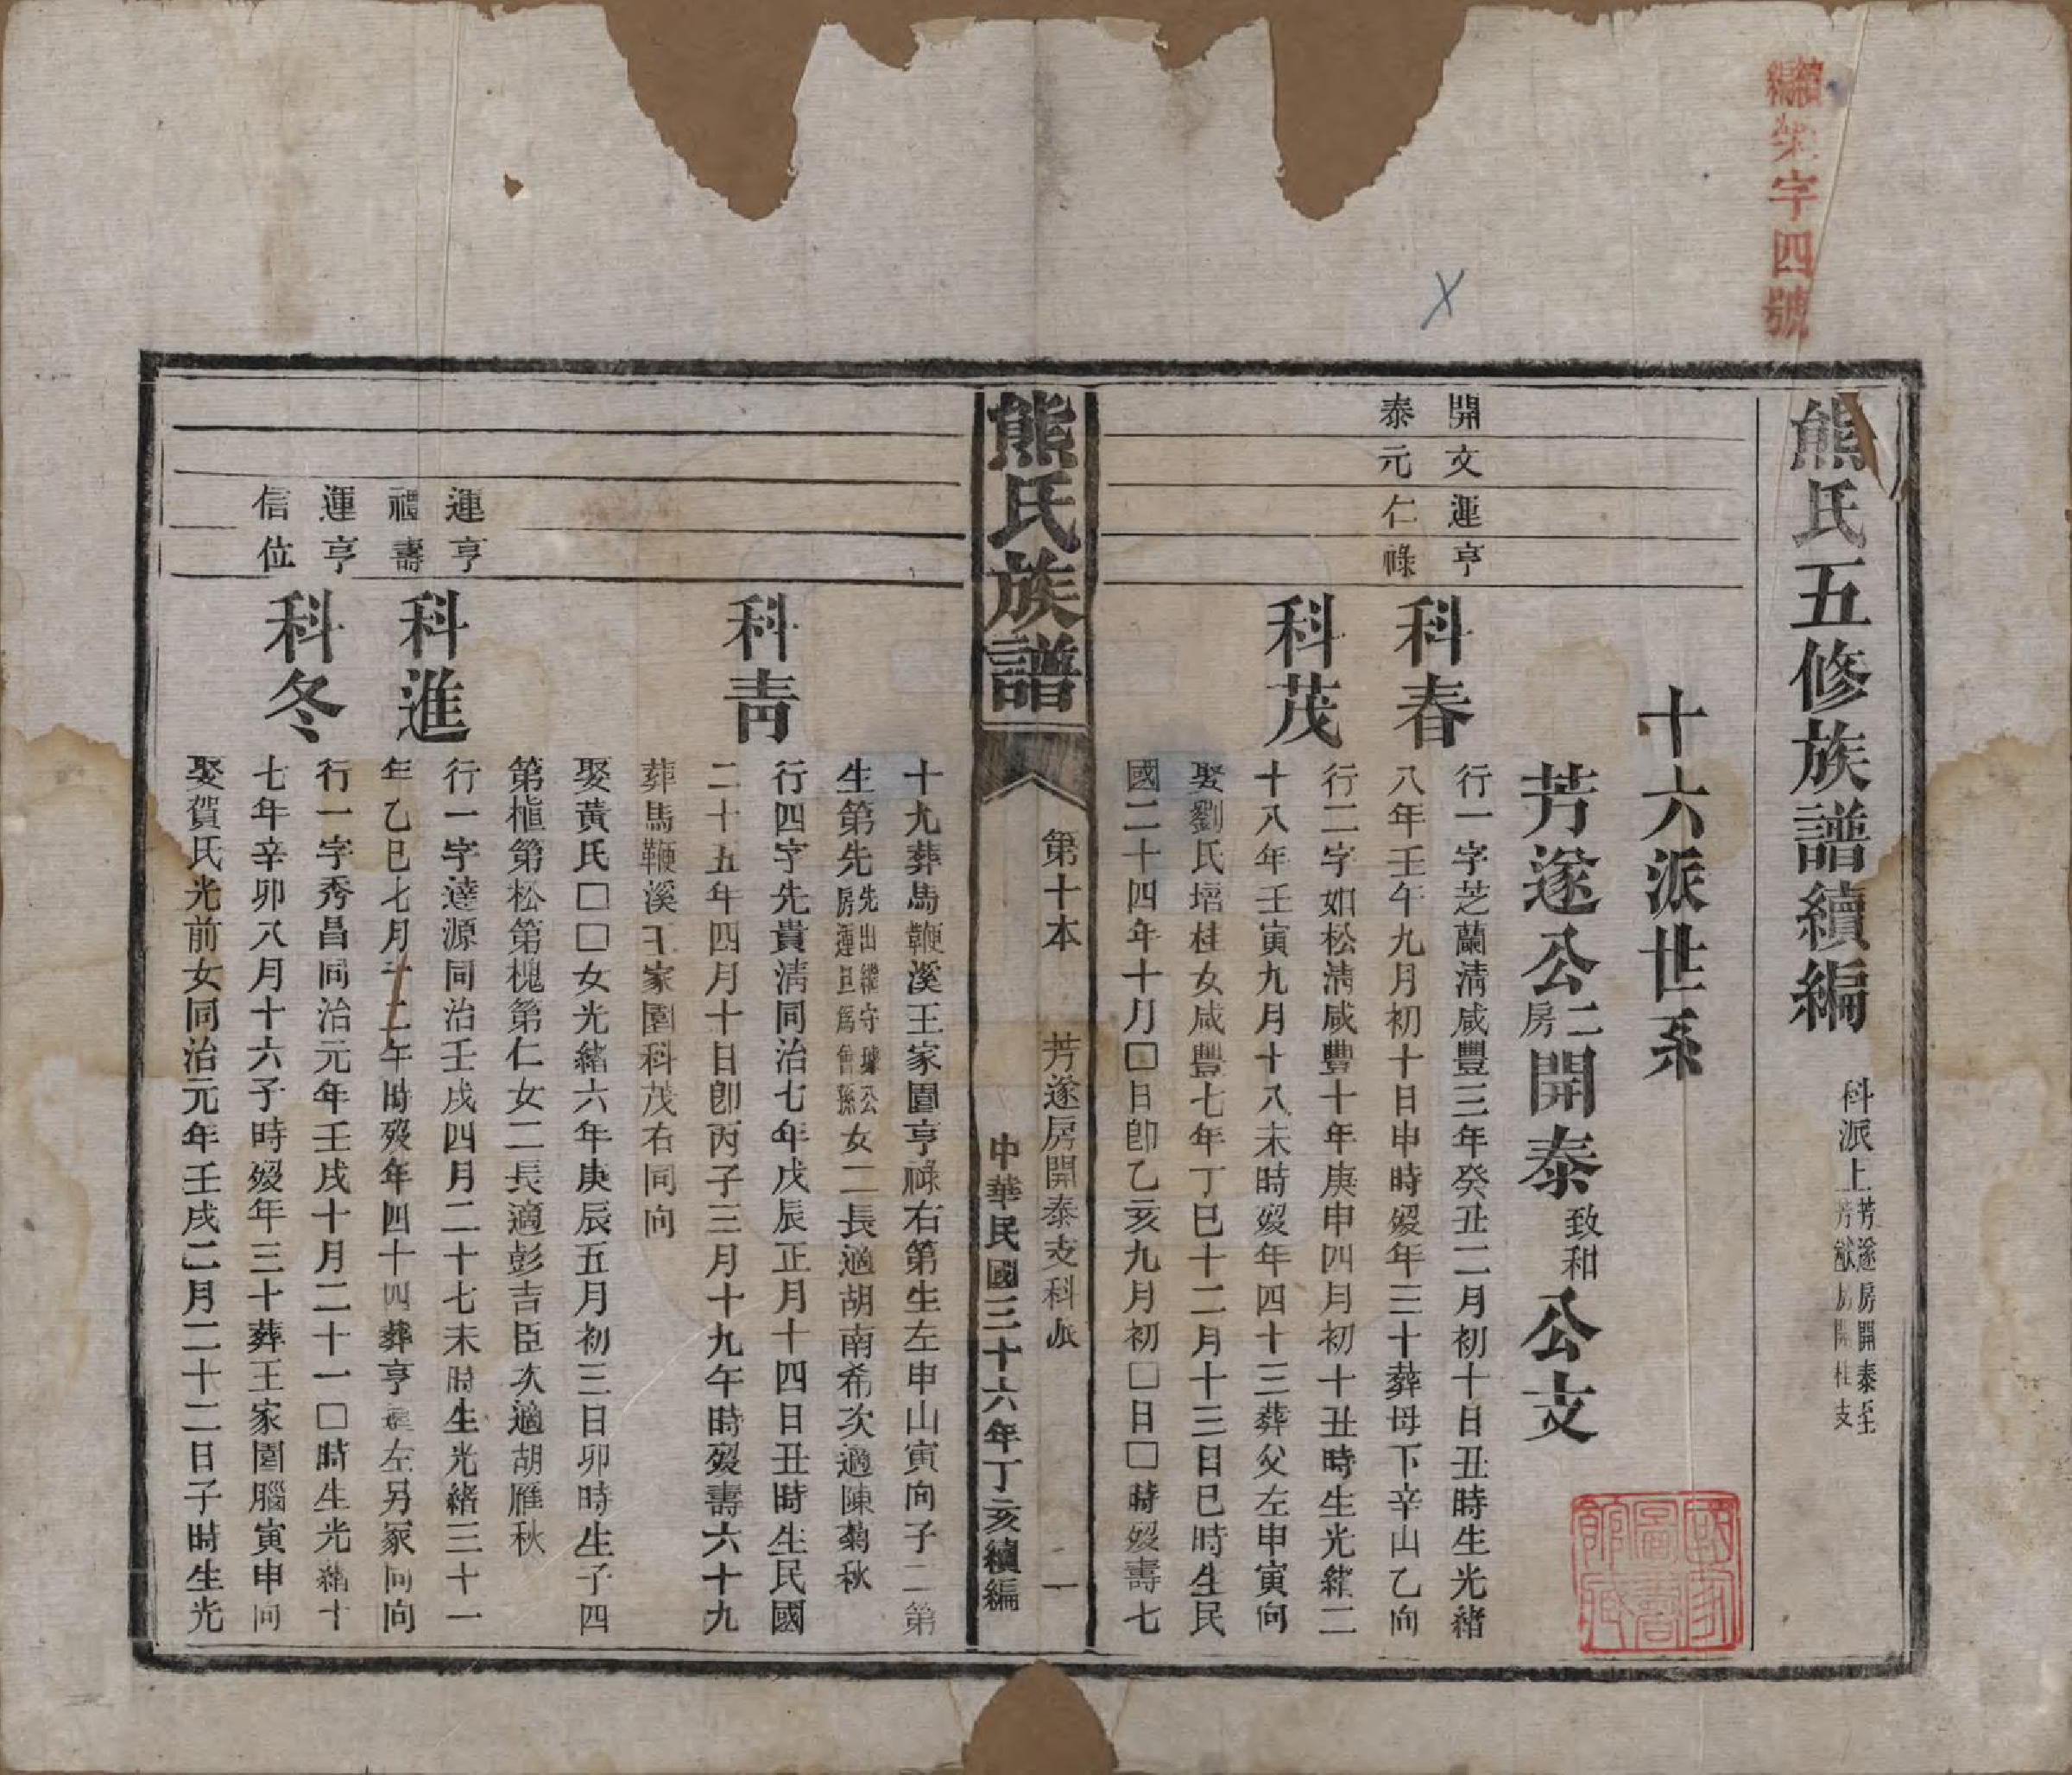 續編榮字四號
熊氏五修族譜續編 科派上 芳遂房開泰至芳猷房開柱支
十六派世系
芳遂公二房開泰致和公支
開文運亨
泰元仁祿
科春
行一字芝蘭清咸豐三年癸丑二月初十日丑時生光緒
八年壬午九月初十日申時歿年三十葬母下辛山乙向
科茂
行二字如松清咸豐十年庚申四月初十丑時生光緒二
十八年壬寅九月十八未時歿年四十三葬父左申寅向
娶劉氏培桂女咸豐七年丁巳十二月十三日巳時生民
國二十四年十月□日卽乙亥九月初□日□時歿壽七
熊氏族譜
第十本
芳遂房開泰支科派
一
中華民國三十六年丁亥續編
十九葬馬鞭溪王家園亨祿右第生左申山寅向子二第
生第先先出繼守據公房運旦爲曾孫女二長適胡南希次適陳菊秋
科青
行四字先貴淸同治七年戊辰正月十四日丑時生民國
二十五年四月十日卽丙子三月十九午時歿壽六十九
葬馬鞭溪王家園科茂右同向
娶黃氏□□女光緒六年庚辰五月初三日卯時生子四
第植第松第槐第仁女二長適彭吉臣次適胡雁秋
運亨
禮壽
科進
行一字達源同治壬戌四月二十七未時生光緒三十一
年乙巳七月十二午時歿年四十四葬亨 左另冢同向
運亨
信位
科冬
行一字秀昌同治元年壬戌十月二十一□時生光緒十
七年辛卯八月十六子時歿年三十葬王家園腦寅申向
娶賀氏光前女同治元年壬戌二月二十二日子時生光
國家圖書館藏